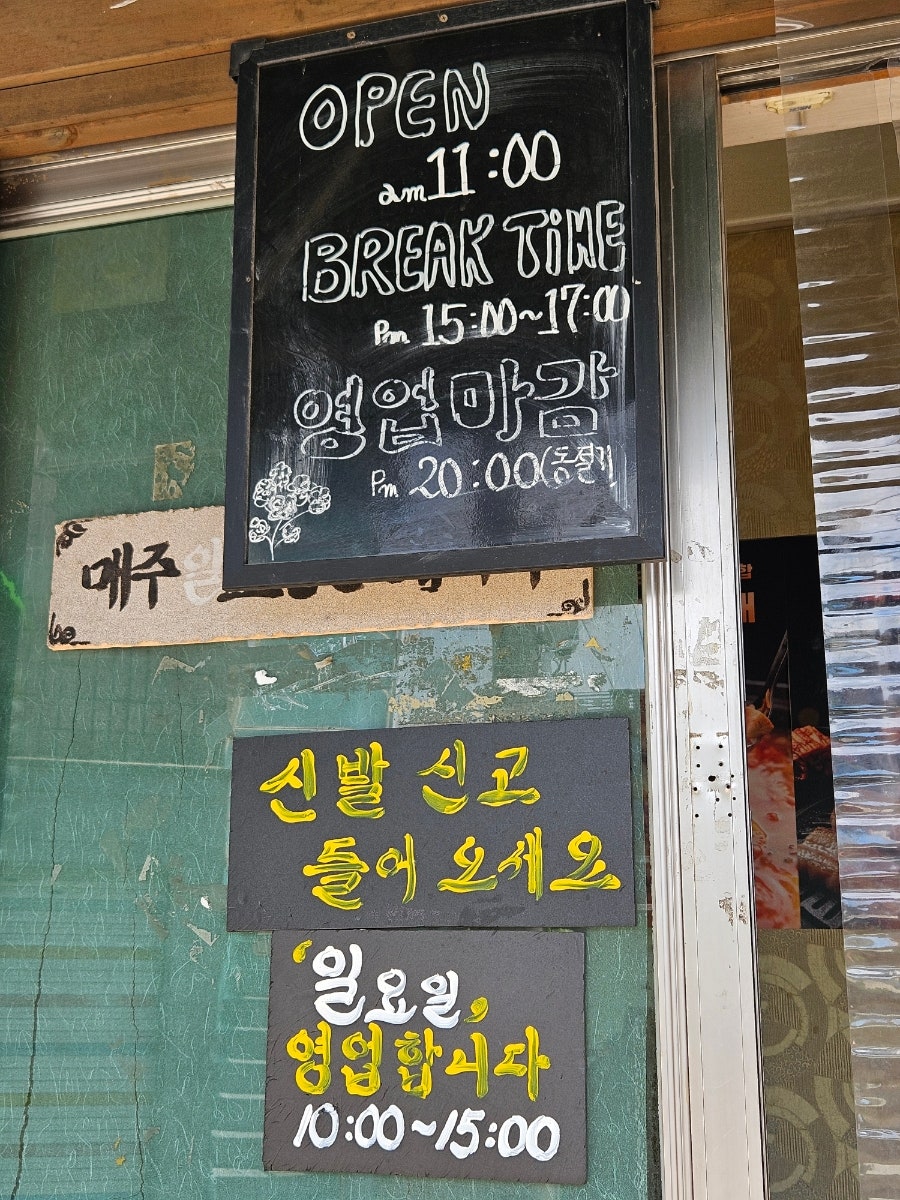 OPEN
am 11:00
BREAK TiME
Pm 15:00~17:00
영업마감
Pm 20:00(동절기)
매주
신발 신고
들어 오세요
'일요일,
영업합니다
10:00~15:00